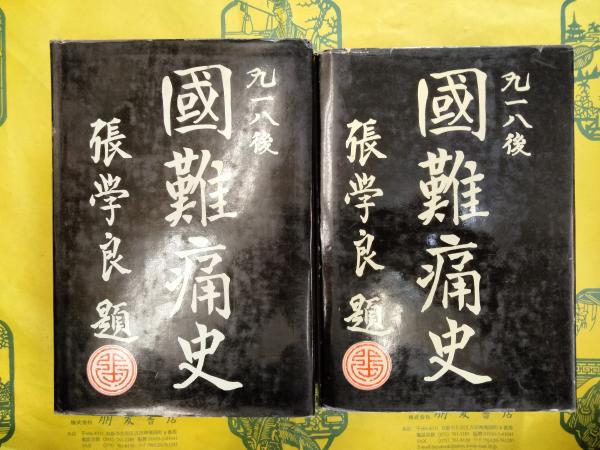 九一八後
國難痛史
張学良題
九一八後
國難痛史
張学良題
株式会社 朋友書店